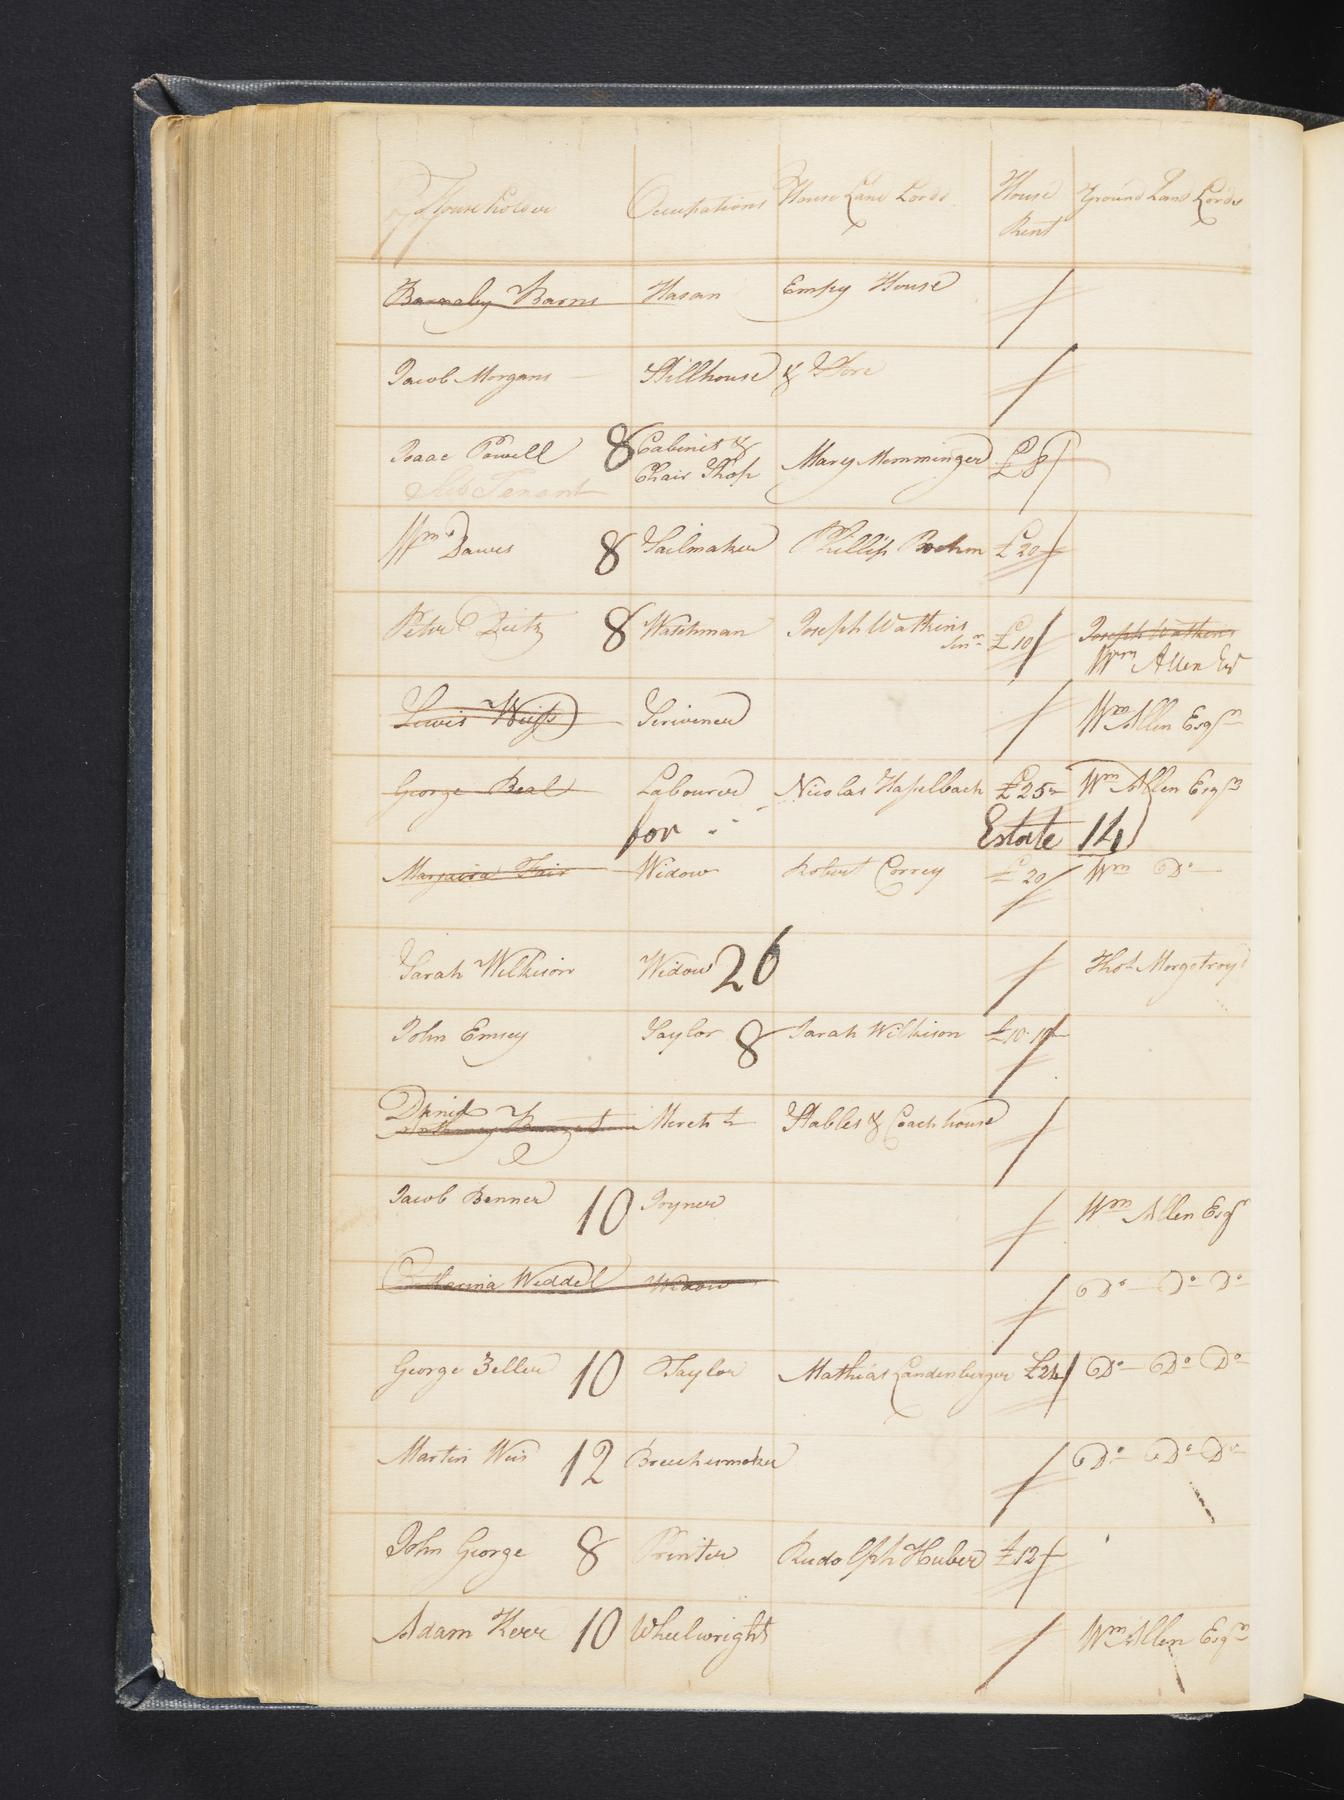 Householder Occupations House Land Lords House Rent Ground Land Lords
Barnaby Barns Hasan Empy House
Jacob Morgans Stillhouse & Store
Isaac Powell 8 Cabinet & Chair Shop Mary Memminger £8
Sub Tenant
Wm Dawes 8 Sailmaker Phillip Boehm £20
Peter Dietz 8 Watchman Joseph Watkins Junr £10 Joseph Watkins
Wm Allen Esr
Lewis Weiss Scrivener Wm Allen Esqr
George Beal Labourer Nicolas Haselbach £25 Wm Allen Esqr
for Estate 14
Fair Widow Robert Correy £20 Wm Do
Sarah Wilkison Widow 26 Thos Morgotroyd
John Emsey Taylor 8 Sarah Wilkison £10.10
Mercht Stables & Coach house
Jacob Benner 10 Joyner Wm Allen Esqr
Catharina Weddel Widow Do Do Do
George Zeller 10 Taylor Mathias Landenberger £24 Do Do Do
Martin Weis 12 Breechesmaker Do Do Do
John George 8 Printer Rudolph Huber £12
Adam Kerr 10 Wheelwright Wm Allen Esqr